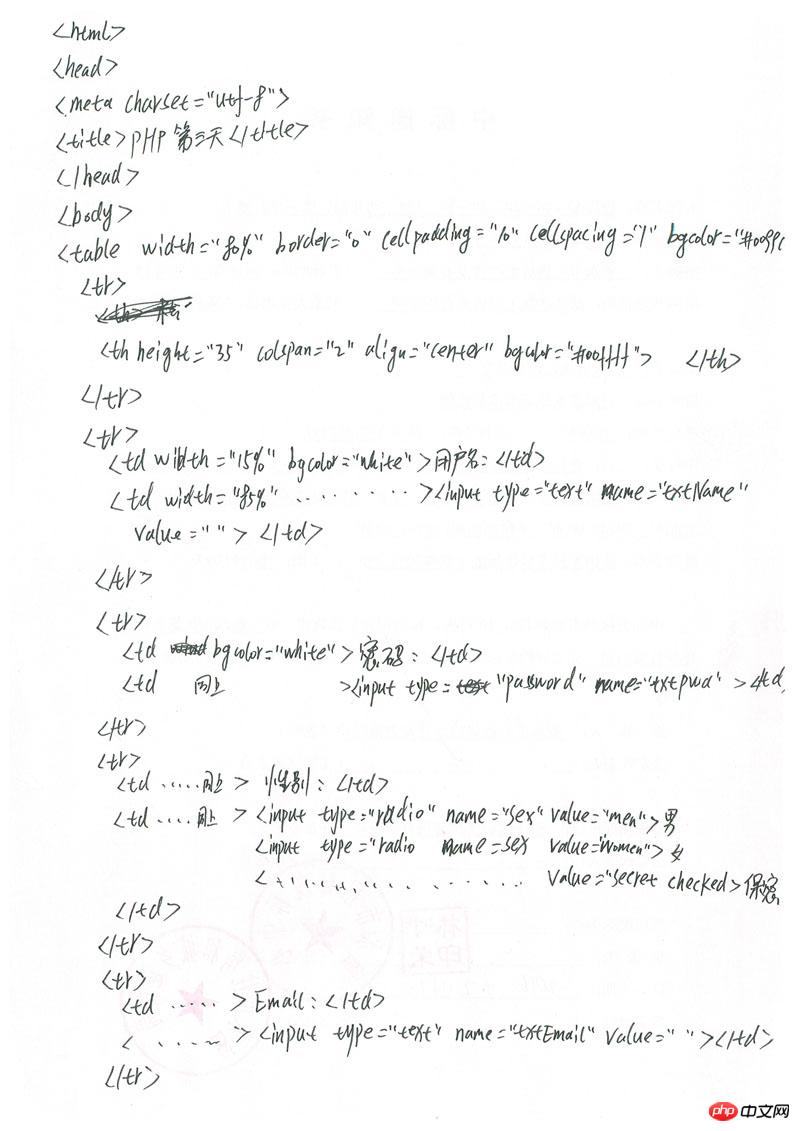 <html>
<head>
<meta charset="utf-8">
<title>PHP 第三天</title>
</head>
<body>
<table width="80%" border="0" cellpadding="10" cellspacing="1" bgcolor="#0099c
<tr>
<th height="35" colspan="2" align="center" bgcolor="#00ffff"> </th>
</tr>
<tr>
<td width="15%" bgcolor="white">用户名:</td>
<td width="85%" ..........><input type="text" name="txtName"
value=" "> </td>
</tr>
<tr>
<td bgcolor="white">密码:</td>
<td 同上 ><input type="password" name="txtpwd" ></td
</tr>
<tr>
<td .....同上> 性别:</td>
<td .....同上> <input type="radio" name="sex" value="men">男
<input type="radio name=sex value="women">女
<.......... value="secret checked>保密
</td>
</tr>
<tr>
<td .....> Email:</td>
< .....> <input type="text" name="txtEmail" value=" "></td>
</tr>
php 中文网